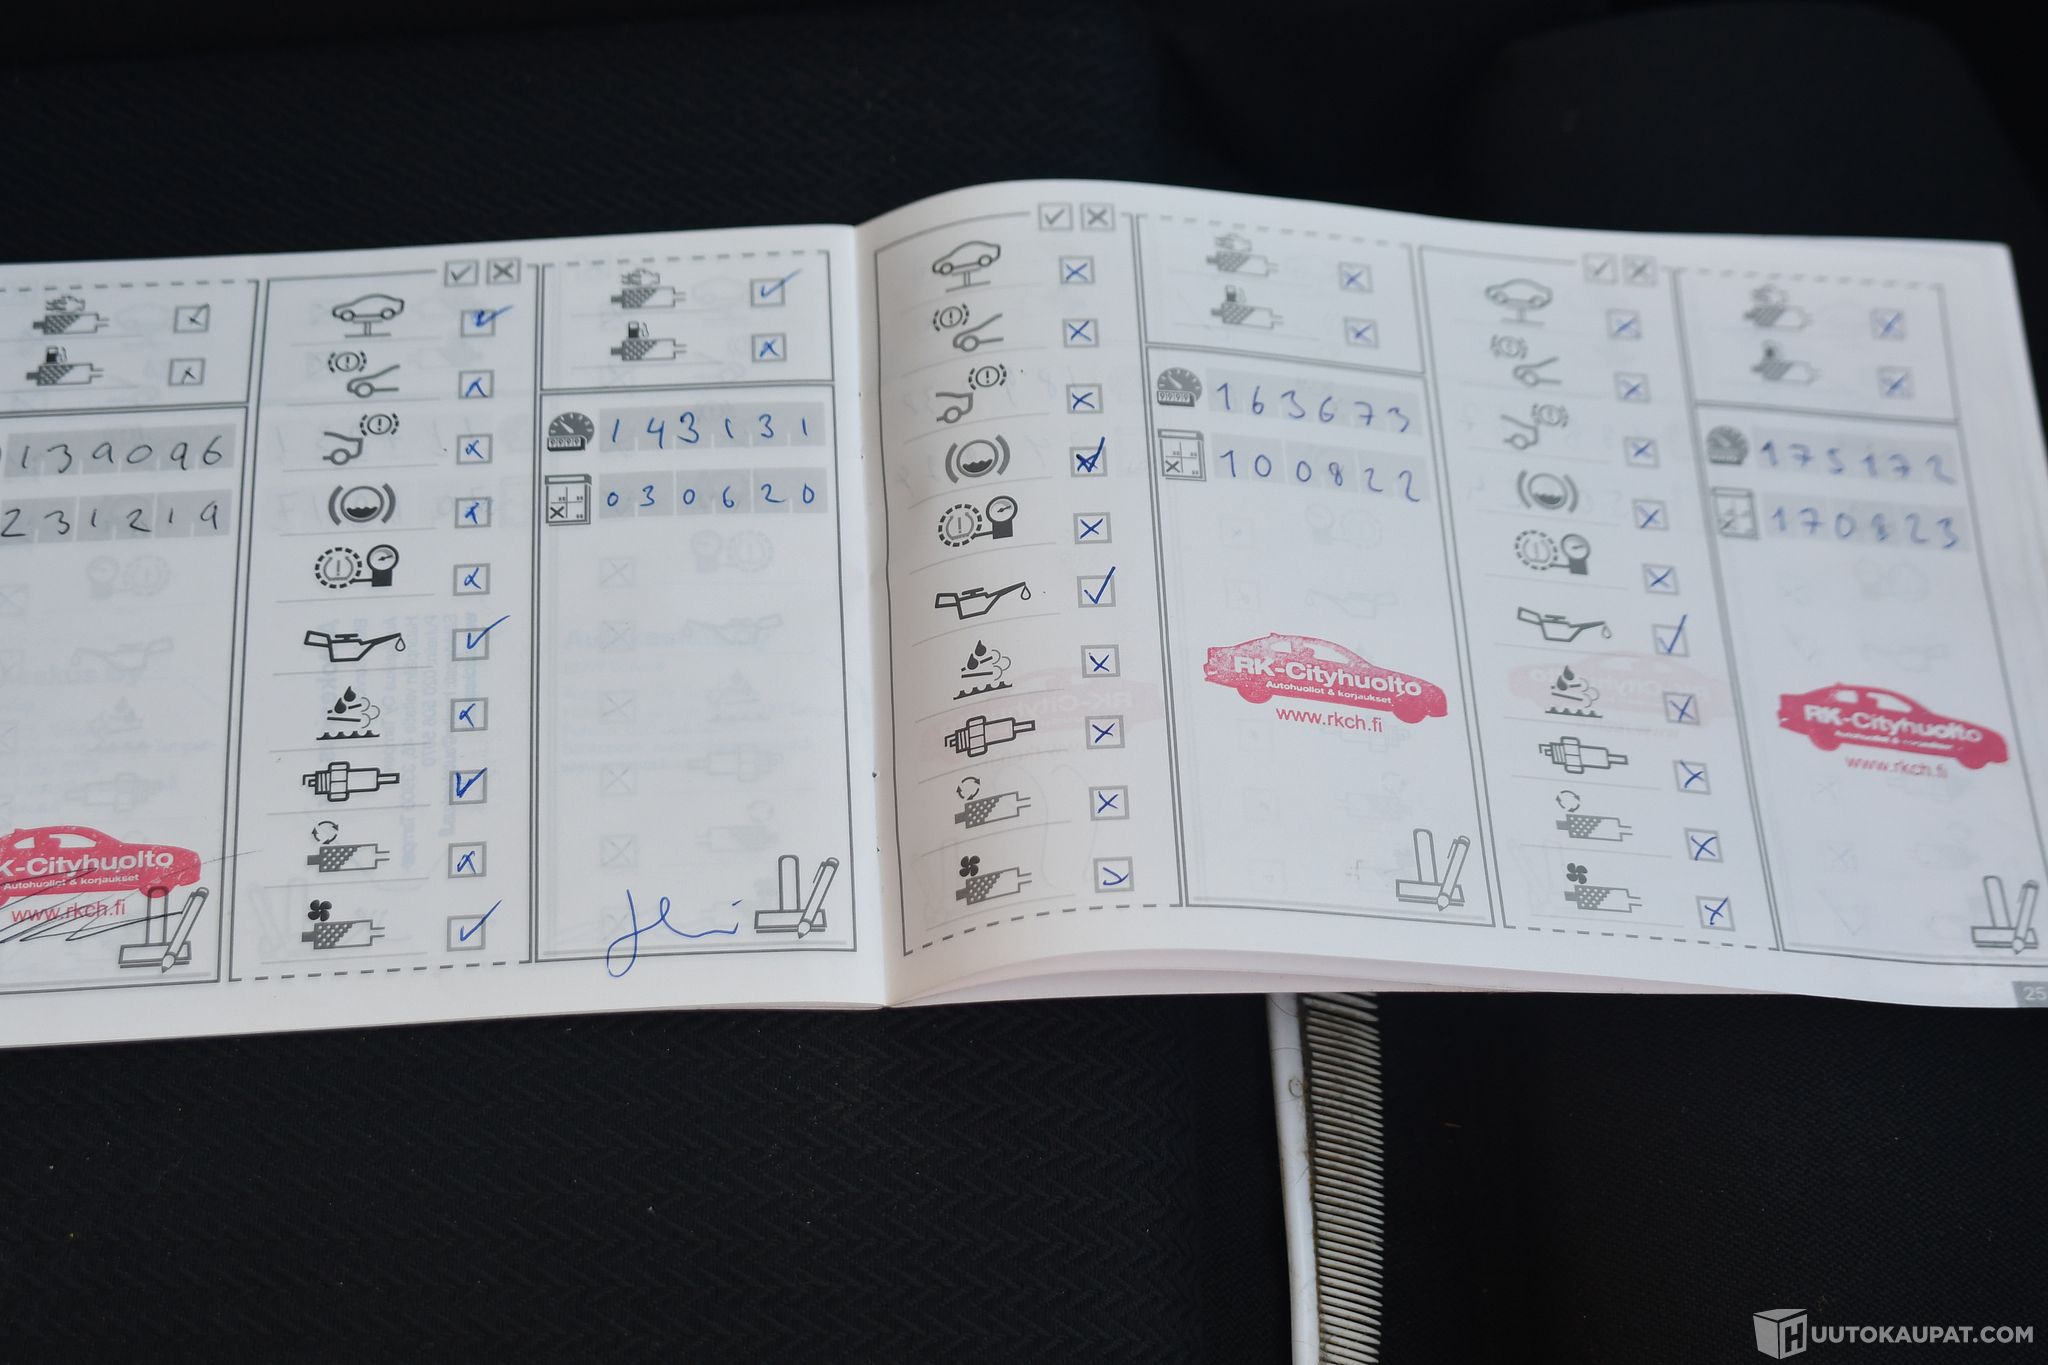 139096
231219
K-Cityhuolto
Autohuollot & korjaukset
www.rkch.fi
143131
030620
163673
100822
RK-Cityhuolto
Autohuollot & korjaukset
www.rkch.fi
175172
170823
RK-Cityhuolto
Autohuollot & korjaukset
www.rkch.fi
25
HUUTOKAUPAT.COM